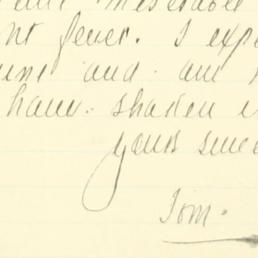 miserable
fever. I exp
and am
have shaken
yours
Tom.